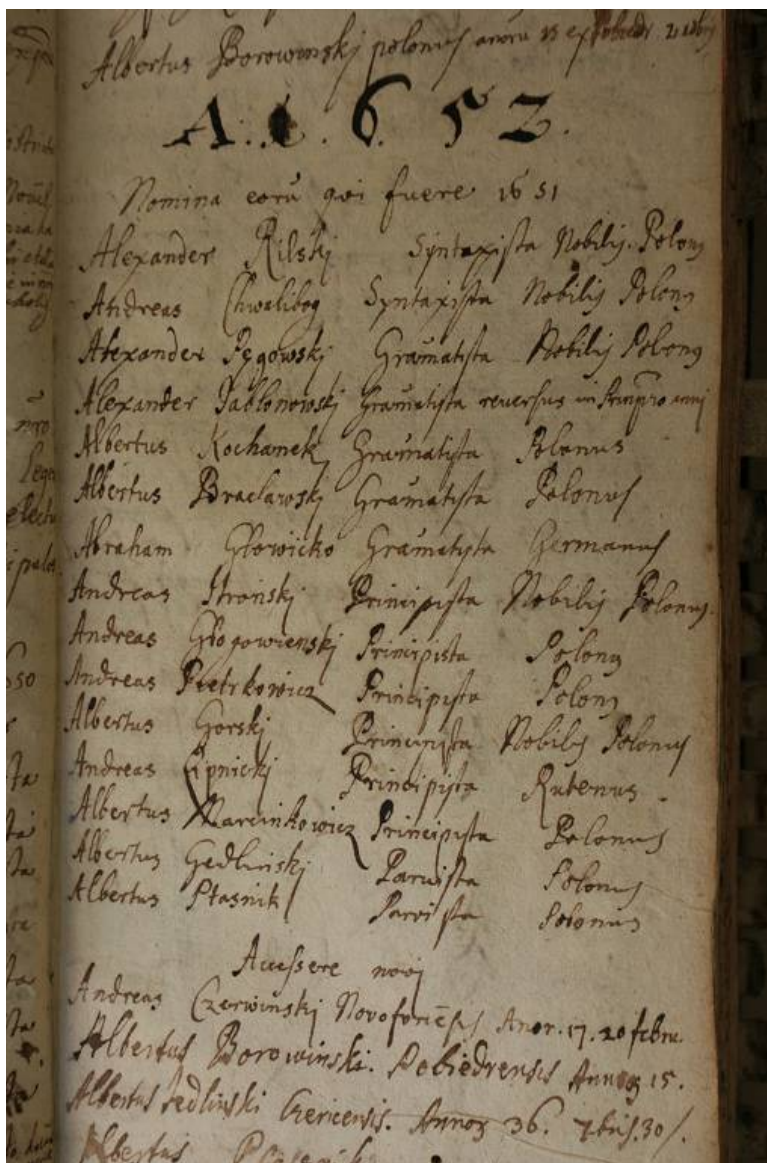 Albertus Borowinskj polonus annoru 15 ex
A. 1652.
Nomina eorū qui fuere 1651
Alexander Rilskj Syntaxista Nobilis Polonꝰ
Andreas Chwalibog Syntaxista Nobilis Polonꝰ
Alexander Pęgowskj Gram̄atista Nobilis Polonꝰ
Alexander Jabłonowskj Gram̄atista reversus in
Albertus Kochanek Gram̄atista Polonus
Albertus Braclawskj Gram̄atista Polonus
Abraham Głowicko Gram̄atista Germanus
Andreas Stroński Principista Nobilis Polonꝰ.
Andreas Głogowienskj Principista Polonꝰ
Andreas Pietrkowicz Principista Polonꝰ
Albertus Gorskj Principista Nobilis Polonus
Andreas Lipnickj Principista Rutenus
Albertus Marcinkowicz Principista Polonus
Albertus Gedlinskj Parvista Polonus
Albertus Ptasnik Parvista Polonus
Accessere novj
Andreas Czerwinskj Anor. 17. 20 febru.
Albertus Borowinski. Pobiedrensis Annoꝝ 15.
Albertus Jedlinski Annoꝝ 36. 7bris. 30
Albertus